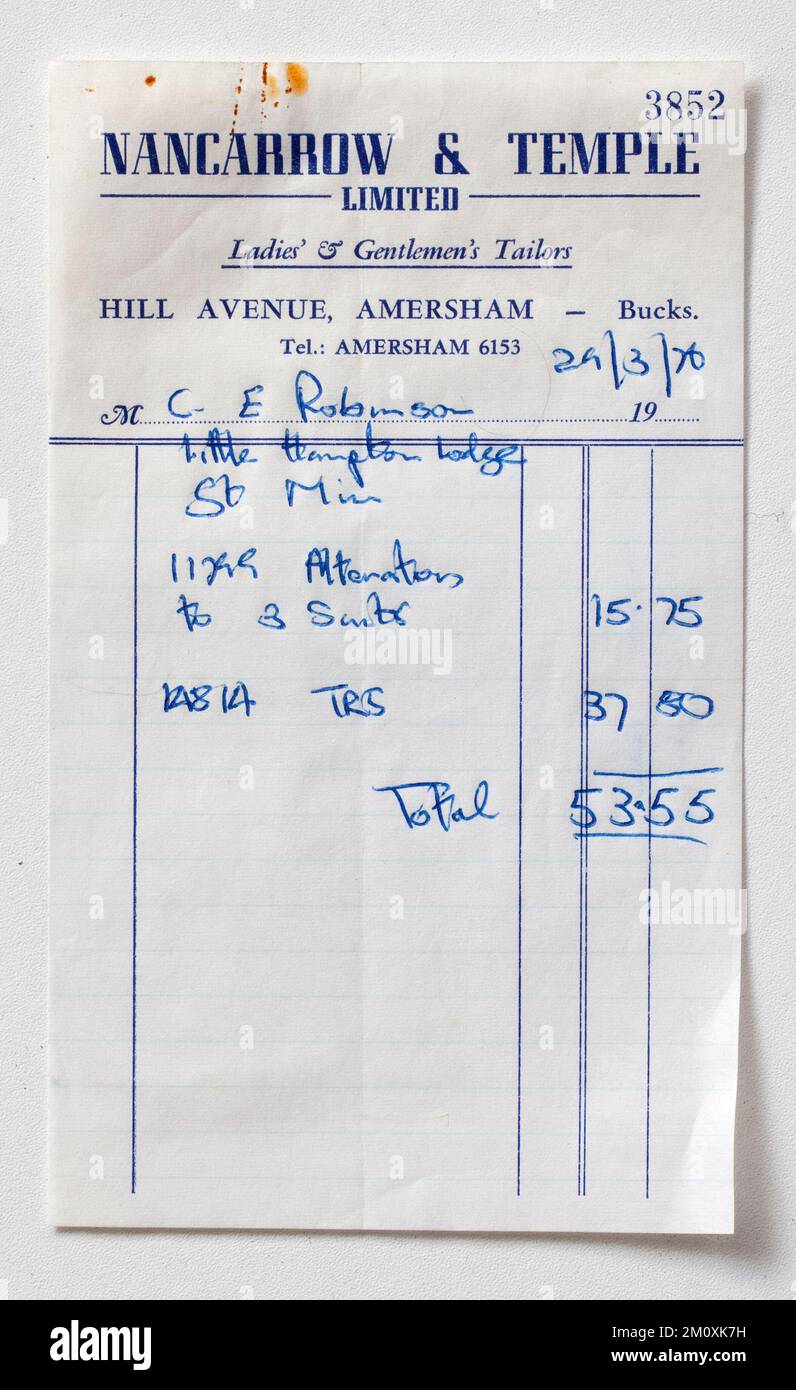 3852
NANCARROW & TEMPLE
LIMITED
Ladies' & Gentlemen's Tailors
HILL AVENUE, AMERSHAM — Bucks.
Tel.: AMERSHAM 6153
29/3/76
M C E Robinson 19
Little Hampton Lodge
St
11799 Alterations
to 3 Suits 15.75
14814 TRS 37 80
Total 53.55
alamy
Image ID: 2M0XK7H
www.alamy.com